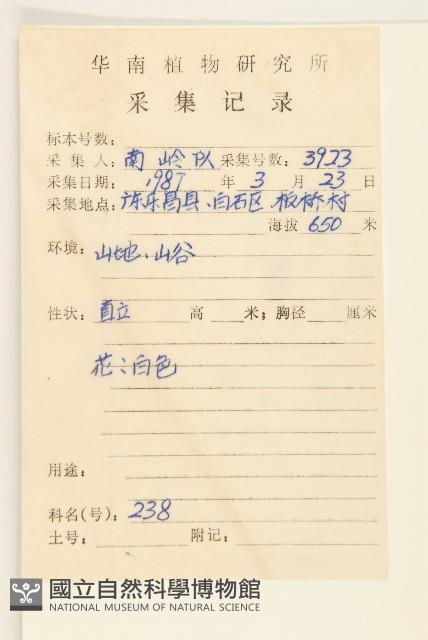 华南植物研究所
采集记录
标本号数：
采集人：南岭队 采集号数：3923
采集日期：1987 年 3 月 23 日
采集地点：广东乐昌县、白石区、板桥村
海拔 650 米
环境：山地、山谷
性状：直立 高 米；胸径 厘米
花：白色
用途：
科名(号)：238
土号： 附记：
國立自然科學博物館
NATIONAL MUSEUM OF NATURAL SCIENCE